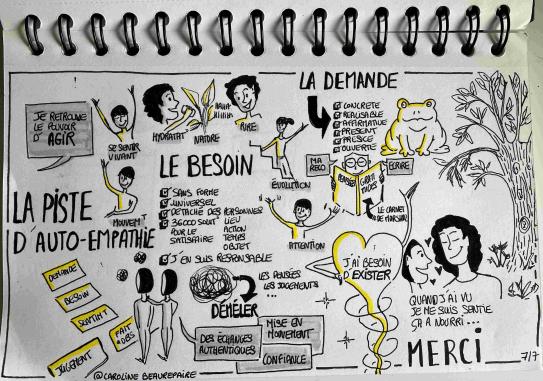 JE RETROUVE
LE POUVOIR
D'AGIR
SE SENTIR
VIVANT
HYDRATAT°
NATURE
RIRE
MOUVEM
LA PISTE
D'AUTO-EMPATHIE
LE BESOIN
SANS FORME
UNIVERSEL
DÉTACHÉ DES PERSONNES
LIEU
ACTION
TEMPS
OBJET
36000 SOLUT°
POUR LE
SATISFAIRE
J'EN SUIS RESPONSABLE
ÉVOLUTION
ATTENTION
LA DEMANDE
CONCRÈTE
RÉALISABLE
AFFIRMATIVE
PRÉSENT
PRÉCISE
OUVERTE
MA
RECO
ÉCRIRE
PENSÉES
LE CARNET
DE MARSHALL
J'AI BESOIN
D'EXISTER
DEMANDE
BESOIN
SENTIMT
FAIT
OBS
JUGEMENT
LES PENSÉES
LES JUGEMENTS
...
DÉMÊLER
DES ÉCHANGES
AUTHENTIQUES
MISE EN
MOUVEMENT
CONFIANCE
QUAND J'AI VU
JE ME SUIS SENTIE
ÇA A NOURRI...
MERCI
7/7
@CAROLINE BEAUREPAIRE